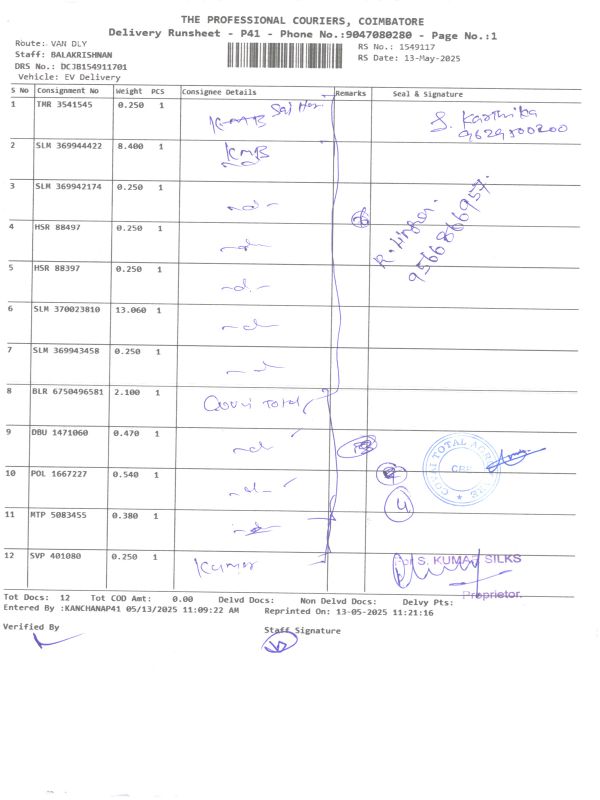 THE PROFESSIONAL COURIERS, COIMBATORE
Delivery Runsheet - P41 - Phone No.:9047080280 - Page No.:1
Route: VAN DLY
Staff: BALAKRISHNAN
DRS No.: DCJB154911701
Vehicle: EV Delivery
RS No.: 1549117
RS Date: 13-May-2025
S No Consignment No Weight PCS Consignee Details Remarks Seal & Signature
1 TMR 3541545 0.250 1 KMB Sai Hari S. Karthika
9629500200
2 SLM 369944422 8.400 1 KMB
3 SLM 369942174 0.250 1 -do-
9566866957
4 HSR 88497 0.250 1 -do-
5 HSR 88397 0.250 1 -do-
6 SLM 370023810 13.060 1 -do-
7 SLM 369943458 0.250 1 -do-
8 BLR 6750496581 2.100 1 Total
9 DBU 1471060 0.470 1 -do-
10 POL 1667227 0.540 1 -do- 4
11 MTP 5083455 0.380 1 -do-
12 SVP 401080 0.250 1 Kumar S. KUMAR SILKS
Proprietor.
Tot Docs: 12 Tot COD Amt: 0.00 Delvd Docs: Non Delvd Docs: Delvy Pts:
Entered By :KANCHANAP41 05/13/2025 11:09:22 AM Reprinted On: 13-05-2025 11:21:16
Verified By
Staff Signature
12